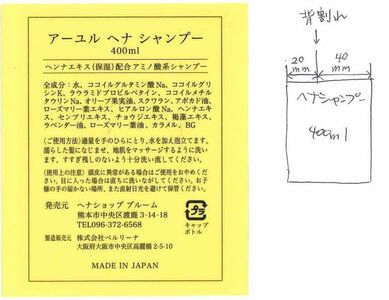 アーユル ヘナ シャンプー
400ml
ヘンナエキス(保湿)配合アミノ酸系シャンプー
全成分：水、ココイルグルタミン酸Na、ココイルグリ
シンK、ラウラミドプロピルベタイン、ココイルメチル
タウリンNa、オリーブ果実油、スクワラン、アボカド油、
ローズマリー葉エキス、ヒアルロン酸Na、ヘンナエ
キス、センブリエキス、チョウジエキス、褐藻エキス、
ラベンダー油、ローズマリー葉油、カラメル、BG
〈ご使用方法〉適量を手のひらにとり、水を加え泡立てます。
濡らした髪になじませ、地肌をマッサージするように洗い
ます。すすぎ残しのないよう十分洗い流してください。
〈使用上の注意〉頭皮に異常がある場合はご使用をおやめくだ
さい。目に入った場合は直ちに洗いながしてください。お子
様の手の届かない場所、また直射日光を避けて保管ください。
発売元 ヘナショップ ブルーム
熊本市中央区渡鹿 3-14-18
TEL096-372-6568
製造販売元 株式会社ベルリーナ
大阪府大阪市中央区高麗橋 2-5-10
プラ
キャップ
ボトル
MADE IN JAPAN
背割れ
20
mm
40
mm
ヘナシャンプー
400ml